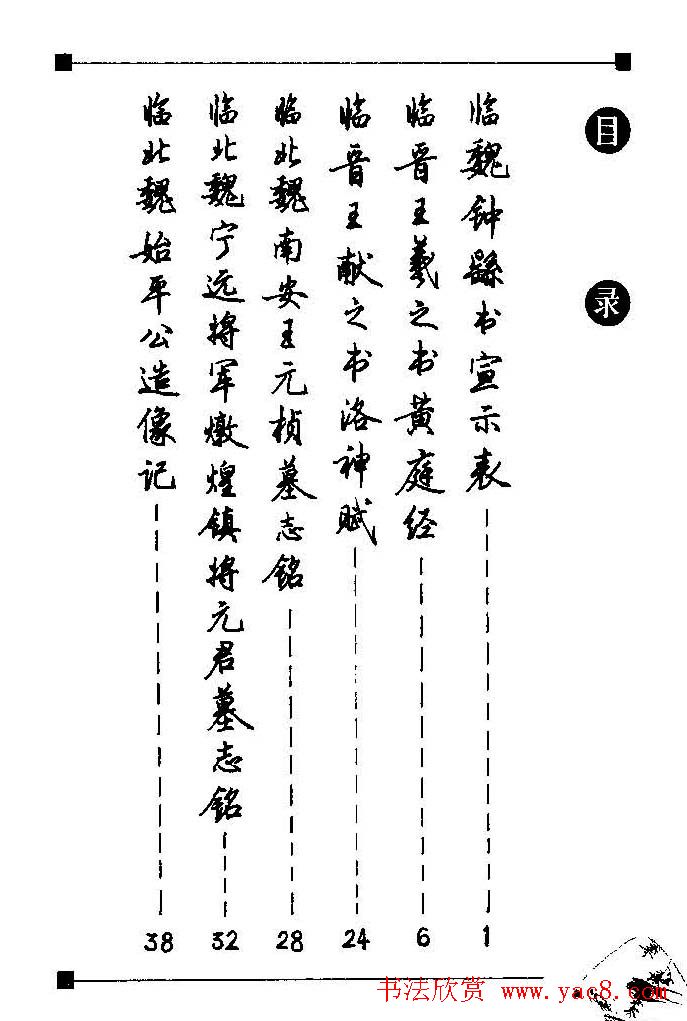 目录
临魏钟繇书宣示表 1
临晋王羲之书黄庭经 6
临晋王献之书洛神赋 24
临北魏南安王元桢墓志铭 28
临北魏宁远将军燉煌镇将元君墓志铭 32
临北魏始平公造像记 38
书法欣赏 www.yac8.com